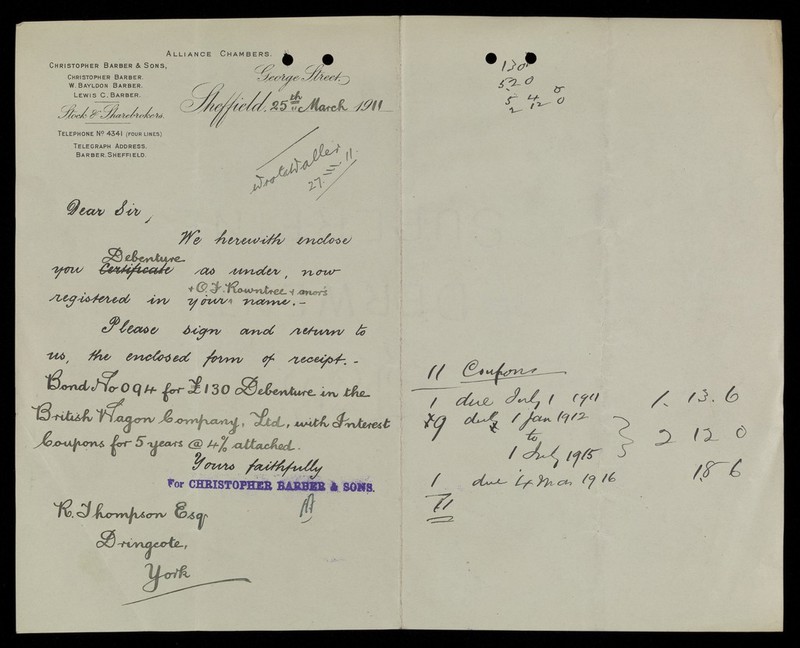 ALLIANCE CHAMBERS.
CHRISTOPHER BARBER & SONS,
CHRISTOPHER BARBER.
W. BAYLDON BARBER.
LEWIS C. BARBER.
Stock & Sharebrokers.
TELEPHONE No 4341 (FOUR LINES)
TELEGRAPH ADDRESS.
BARBER, SHEFFIELD.
George Street,
Sheffield, 25th March 1911
Wrote Waller
27.III.11.
Dear Sir,
We herewith enclose
Debenture
you Certificate as under, now
+ O.F. Rowntree + anors
registered in your name.-
Please sign and return to
us, the enclosed form of receipt.-
Bond No 094 for £130 Debenture in the
British Wagon Company, Ltd, with Interest
Coupons for 5 years @ 4% attached.
Yours faithfully
For CHRISTOPHER BARBER & SONS.
R. Thompson Esqr
Dringcote,
York
130
520
5 4 0
2 12 0
11 Coupons
1 due July 1 1911 1. 13. 6
9 due 1 Jan 1912
to
1 July 1915 2 12 0
1 due 14 Mar 1916 1.8 6
11